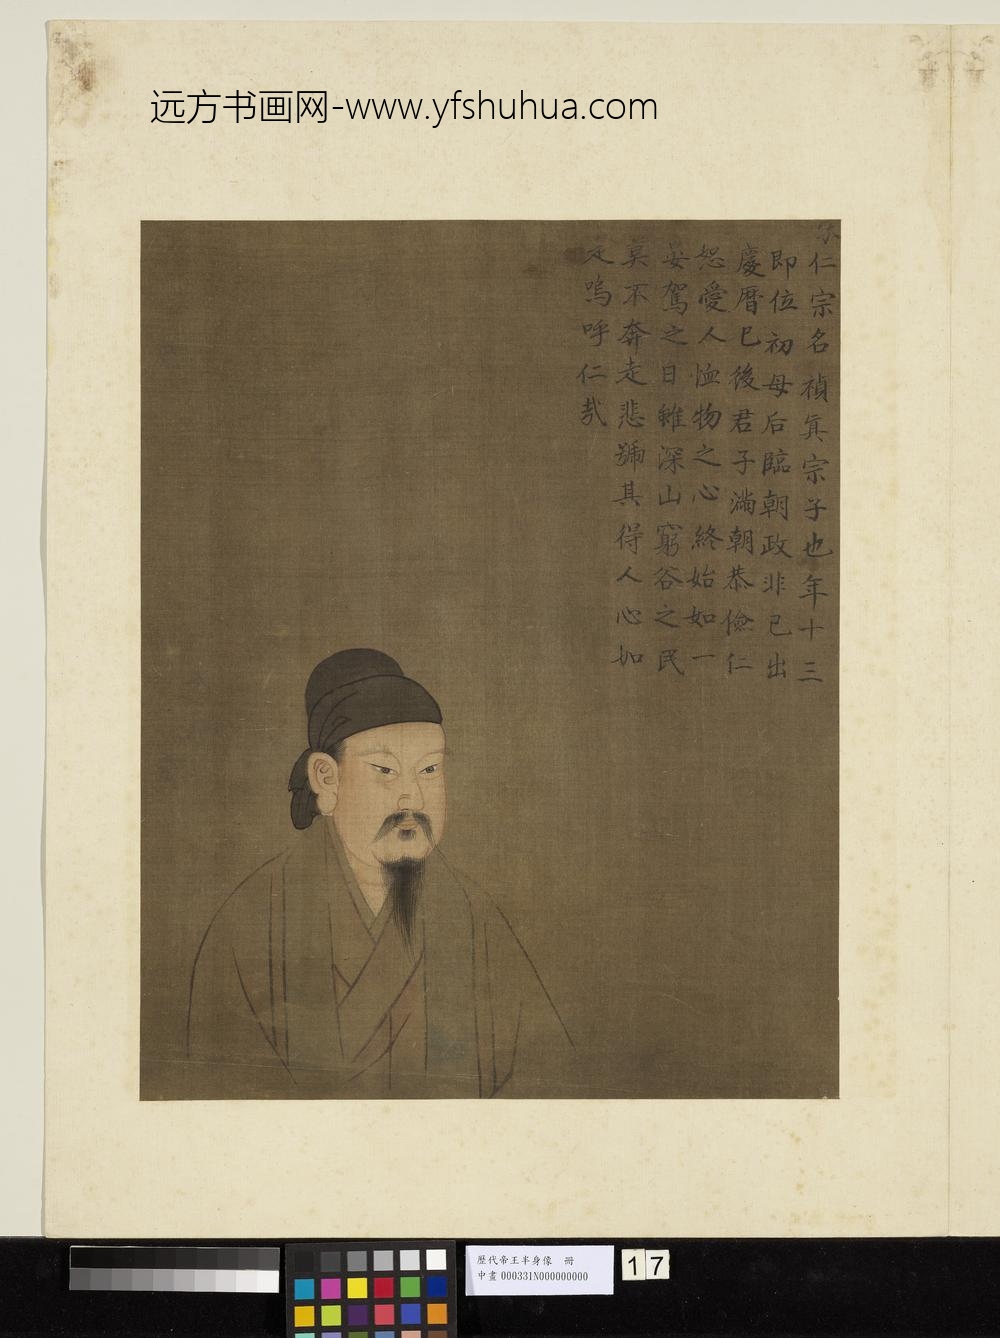 远方书画网-www.yfshuhua.com
宋仁宗名禎眞宗子也年十三
即位初母后臨朝政非己出
慶曆已後君子滿朝恭儉仁
恕愛人恤物之心終始如一
晏駕之日雖深山窮谷之民
莫不奔走悲號其得人心如
是嗚呼仁哉
歷代帝王半身像 冊
中畫 000331N000000000
17